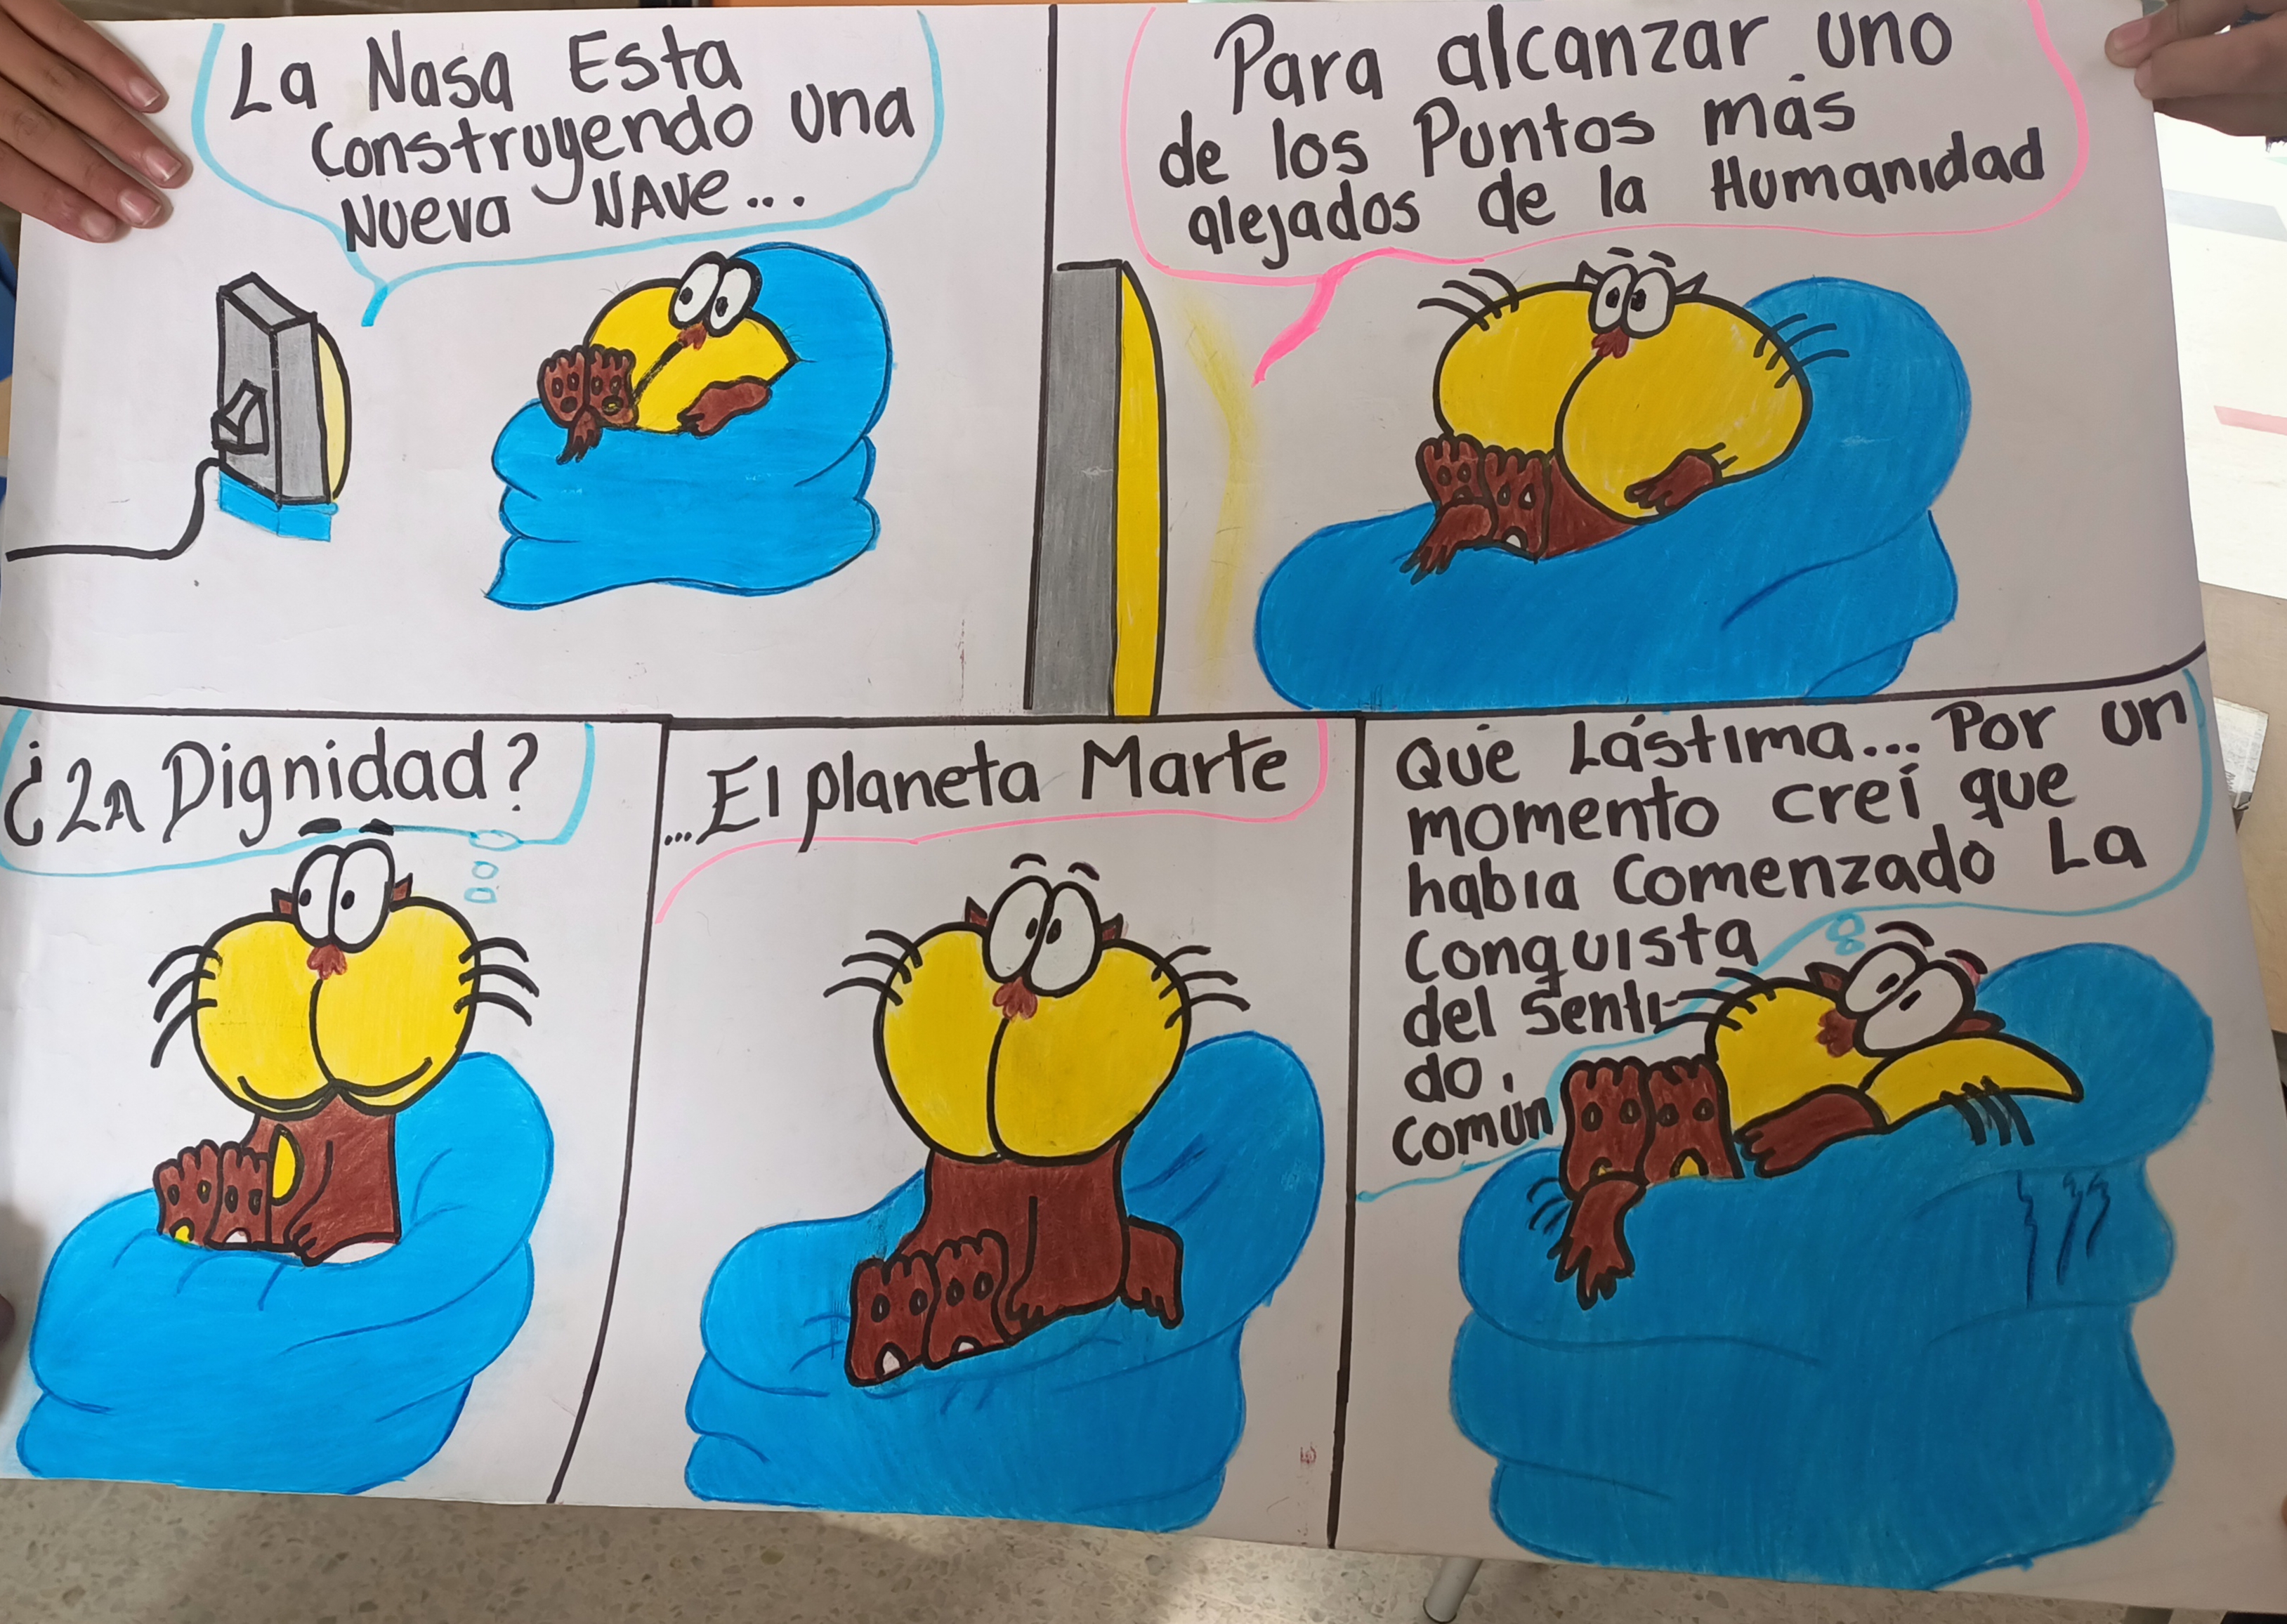 La Nasa Esta
Construyendo una
Nueva NAVe...
Para alcanzar uno
de los Puntos más
alejados de la Humanidad
¿LA Dignidad?
...El planeta Marte
Qué Lástima... Por un
momento creí que
había Comenzado La
Conquista
del Senti-
do.
común